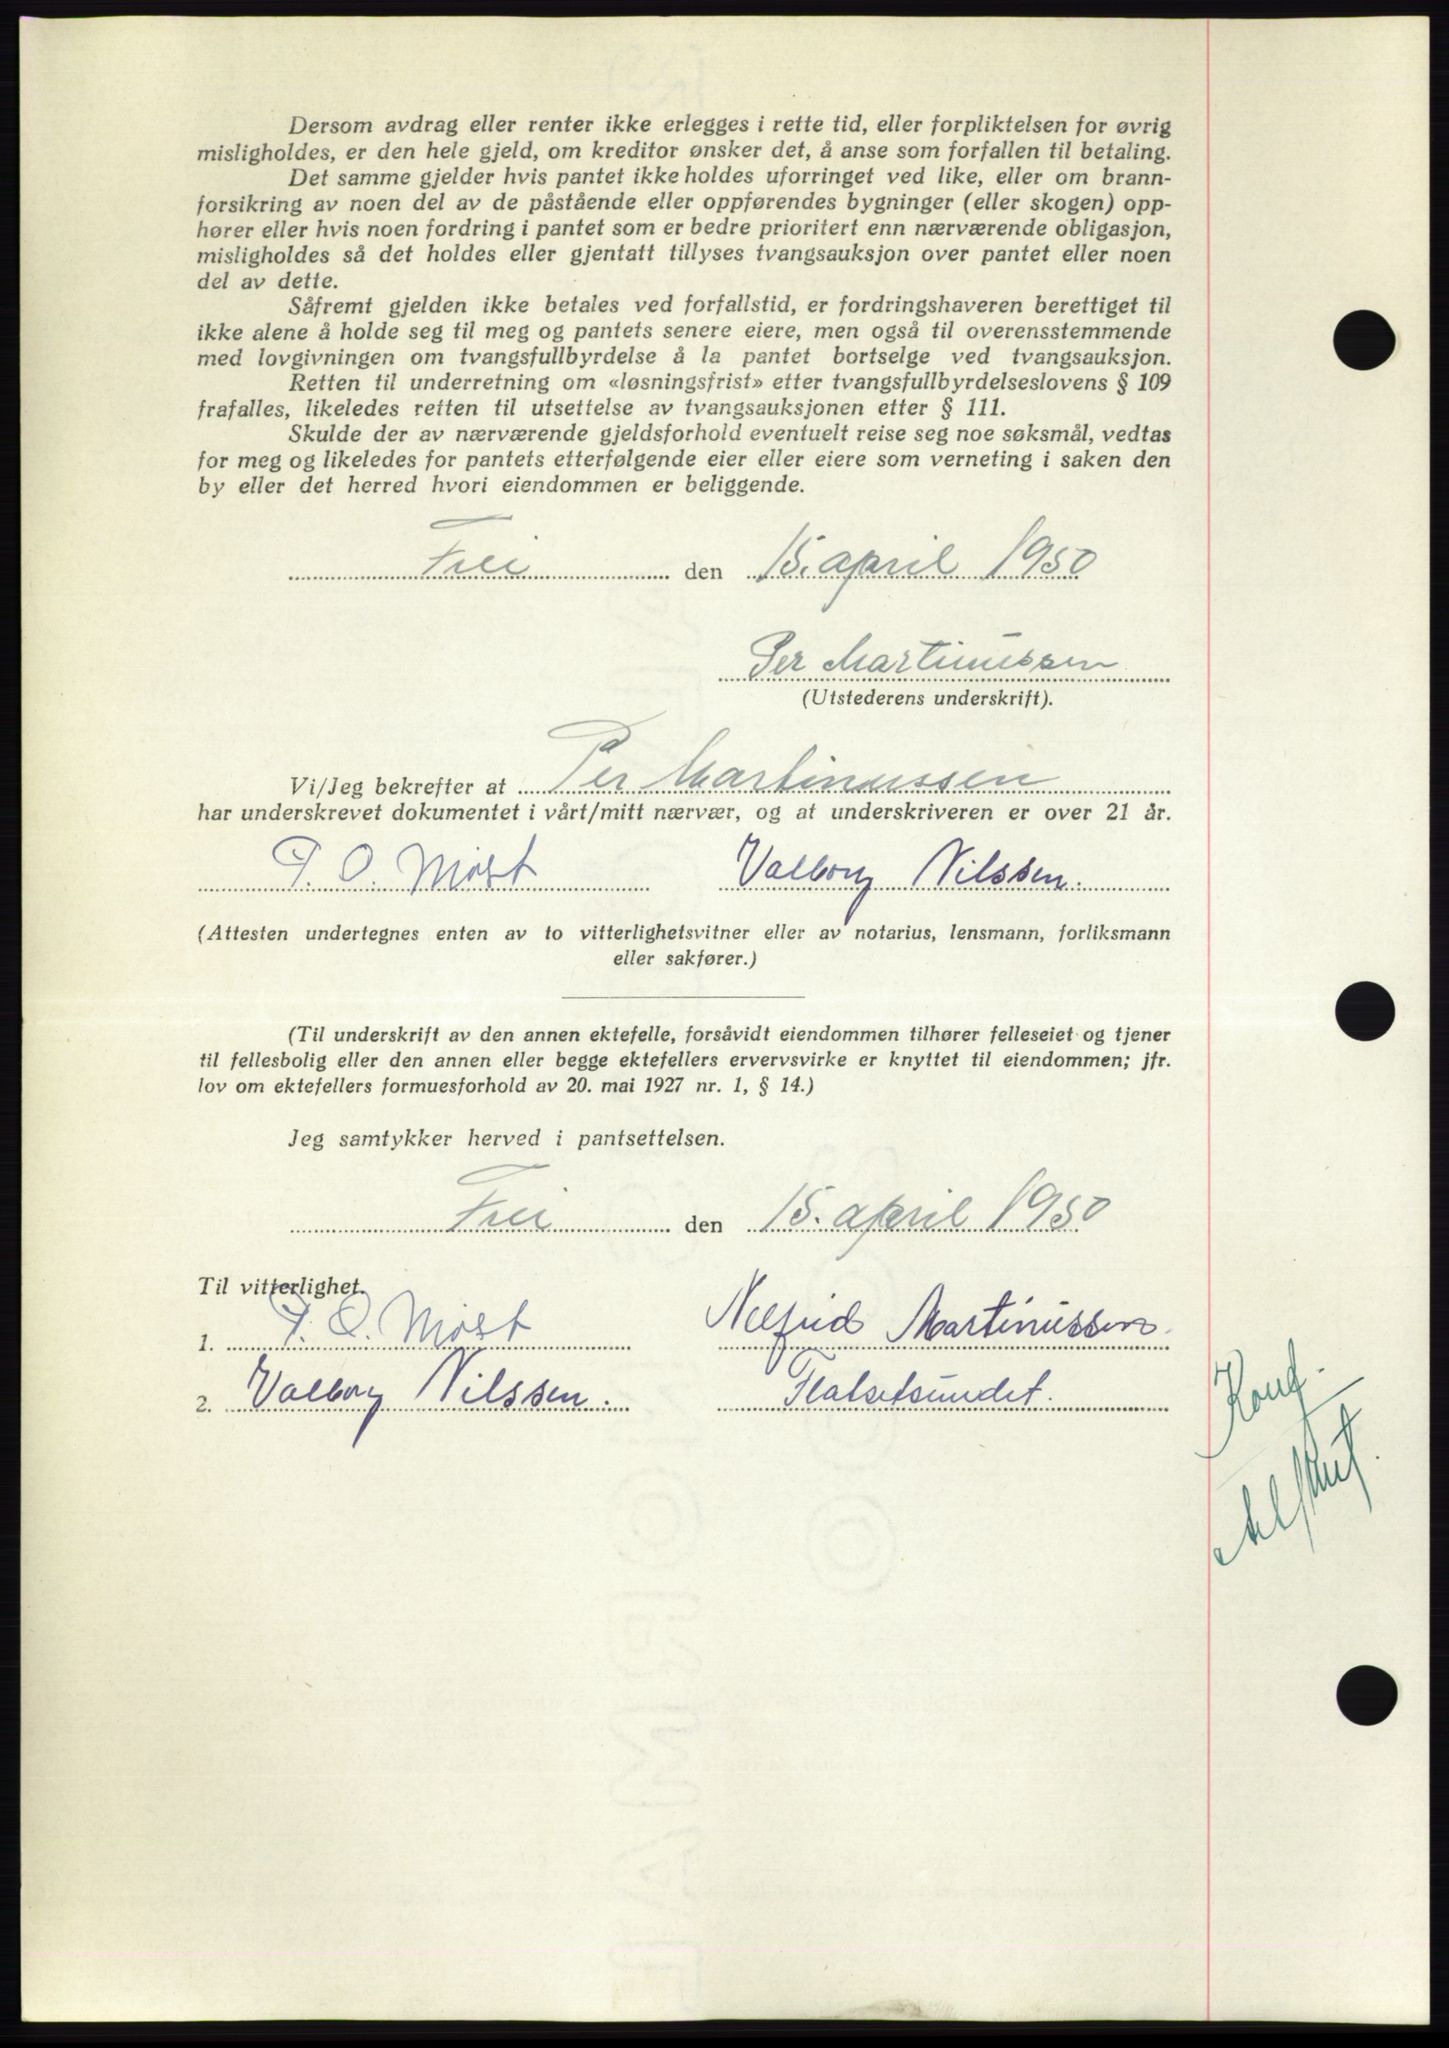 Dersom avdrag eller renter ikke erlegges i rette tid, eller forpliktelsen for øvrig
misligholdes, er den hele gjeld, om kreditor ønsker det, å anse som forfallen til betaling.
Det samme gjelder hvis pantet ikke holdes uforringet ved like, eller om brann-
forsikring av noen del av de påstående eller oppførendes bygninger (eller skogen) opp-
hører eller hvis noen fordring i pantet som er bedre prioritert enn nærværende obligasjon,
misligholdes så det holdes eller gjentatt tillyses tvangsauksjon over pantet eller noen
del av dette.
Såfremt gjelden ikke betales ved forfallstid, er fordringshaveren berettiget til
ikke alene å holde seg til meg og pantets senere eiere, men også til overensstemmende
med lovgivningen om tvangsfullbyrdelse å la pantet bortselge ved tvangsauksjon.
Retten til underretning om «løsningsfrist» etter tvangsfullbyrdelseslovens § 109
frafalles, likeledes retten til utsettelse av tvangsauksjonen etter § 111.
Skulde der av nærværende gjeldsforhold eventuelt reise seg noe søksmål, vedtas
for meg og likeledes for pantets etterfølgende eier eller eiere som verneting i saken den
by eller det herred hvori eiendommen er beliggende.
Frei den 15. april 1950
Per Martinussen
(Utstederens underskrift).
Vi/Jeg bekrefter at Per Martinussen
har underskrevet dokumentet i vårt/mitt nærvær, og at underskriveren er over 21 år.
P. O. Møst Valborg Nilssen.
(Attesten undertegnes enten av to vitterlighetsvitner eller av notarius, lensmann, forliksmann
eller sakfører.)
(Til underskrift av den annen ektefelle, forsåvidt eiendommen tilhører felleseiet og tjener
til fellesbolig eller den annen eller begge ektefellers ervervsvirke er knyttet til eiendommen; jfr.
lov om ektefellers formuesforhold av 20. mai 1927 nr. 1, § 14.)
Jeg samtykker herved i pantsettelsen.
Frei den 15. april 1950
Til vitterlighet.
1. P. O. Møst Nelfrid Martinussen.
2. Valborg Nilssen. Flatsetsundet.
Konf.